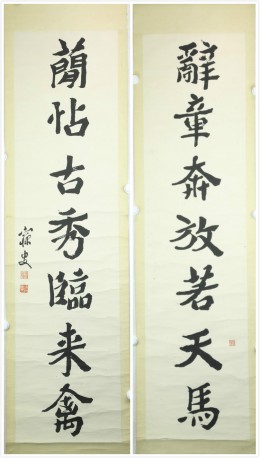 辭章奔放若天馬
蘭帖古秀臨来禽